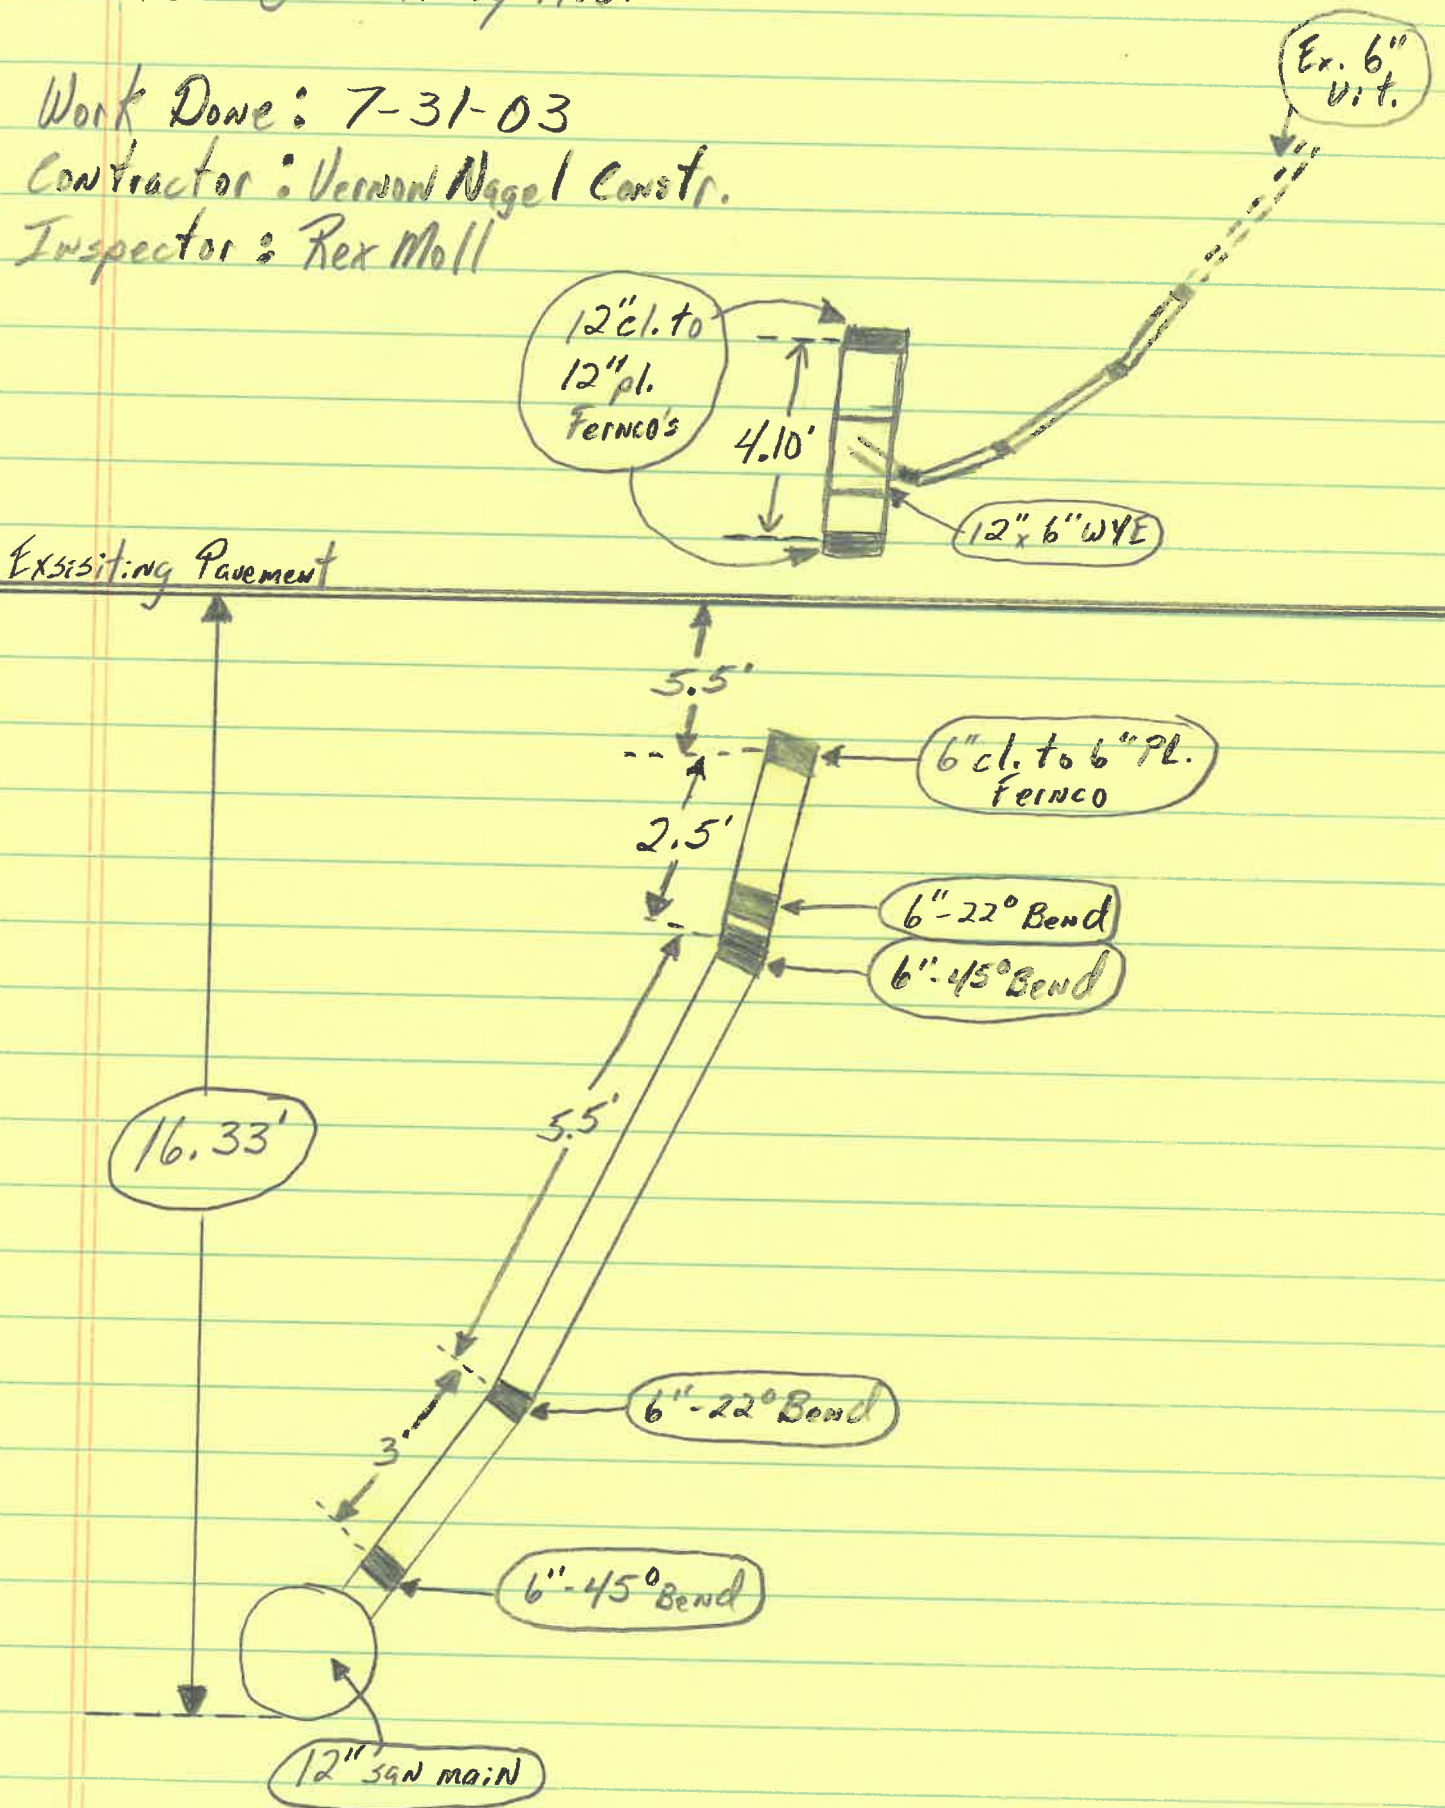 Work Done: 7-31-03
Contractor: Vernon Nagel Constr.
Inspector: Rex Moll
Ex. 6"
Vit.
12" cl. to
12" pl.
Fernco's
4.10'
12" x 6" WYE
Exsisiting Pavement
5.5'
6" cl. to 6" PL.
Fernco
2.5'
6"-22° Bend
6"-45° Bend
5.5'
16.33'
6"-22° Bend
3'
6"-45° Bend
12" san main